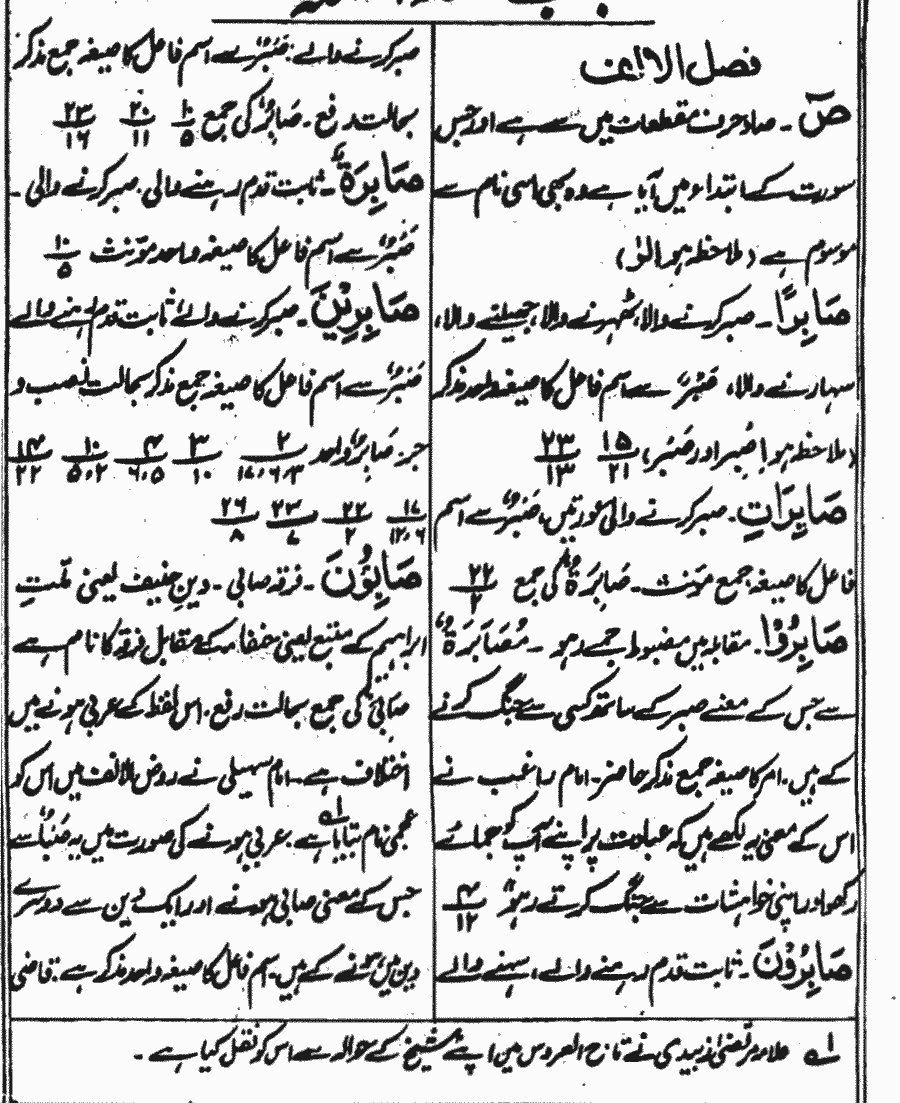 فصل الالف
صٓ ۔ صاد حرف مقطعات میں سے ہے اور جس
سورت کے ابتداء میں آیا ہے وہ بھی اسی نام سے
موسوم ہے (ملاحظہ ہو الٓرٰ)
صَابِرًا ۔ صبر کرنے والا، ٹھہرنے والا، جھیلنے والا،
سہارنے والا، صَبْرٌ سے اسم فاعل کا صیغہ واحد مذکر
(ملاحظہ ہو اِصْبِر اور صَبْر،) ۱۵/۲۱ ۲۳/۱۳
صَابِرَاتِ ۔ صبر کرنے والی عورتیں، صَبْرٌ سے اسم
فاعل کا صیغہ جمع مؤنث ۔ صَابِرَةٌ کی جمع ۲۲/۲
صَابِرُوْا ۔ مقابلہ میں مضبوط جمے رہو ۔ مُصَابَرَةٌ
سے جس کے معنے صبر کے ساتھ کسی سے جنگ کرنے
کے ہیں ۔ امر کا صیغہ جمع مذکر حاضر ۔ امام راغب نے
اس کے معنی یہ لکھے ہیں کہ عبادت پر اپنے آپ کو جمائے
رکھو اور اپنی خواہشات سے جنگ کرتے رہو ۴/۱۲
صَابِرُوْنَ ۔ ثابت قدم رہنے والے، سہنے والے
صبر کرنے والے ۔ صَبْرٌ سے اسم فاعل کا صیغہ جمع مذکر
بحالت رفع ۔ صَابِرٌ کی جمع ۱۰/۵ ۲۰/۱۱ ۲۳/۱۶
صَابِرَةٌ ۔ ثابت قدم رہنے والی ۔ صبر کرنے والی ۔
صَبْرٌ سے اسم فاعل کا صیغہ واحد مؤنث ۱۰/۵
صَابِرِيْنَ ۔ صبر کرنے والے، ثابت قدم رہنے والے
صَبْرٌ سے اسم فاعل کا صیغہ جمع مذکر بحالت نصب و
جر ۔ صَابِرٌ واحد ۲/۱۷،۶،۳ ۳/۱۰ ۴/۶،۵ ۱۰/۵،۲ ۱۴/۲۲
۱۷/۱۲،۶ ۲۲/۲ ۲۳/۷ ۲۶/۸
صَابِؤُنَ ۔ فرقہ صابی ۔ دینِ حنیف یعنی ملّتِ
ابراہیم کے متبع یعنی حنفاء کے مقابل فرقہ کا نام ہے
صَابِئٌ کی جمع بحالت رفع ۔ اس لفظ کے عربی ہونے میں
اختلاف ہے ۔ امام سہیلی نے روض الانف میں اس کو
عجمی نام بتایا ہے ۔ لہ عربی ہونے کی صورت میں یہ صَبَأَ سے
جس کے معنی صابی ہونے اور ایک دین سے دوسرے
دین میں ہونے کے ہیں ۔ اسم فاعل کا صیغہ واحد مذکر ہے ۔ قاضی
لہ علامہ مرتضیٰ زبیدی نے تاج العروس میں اپنے شیخ کے حوالہ سے اس کو نقل کیا ہے ۔